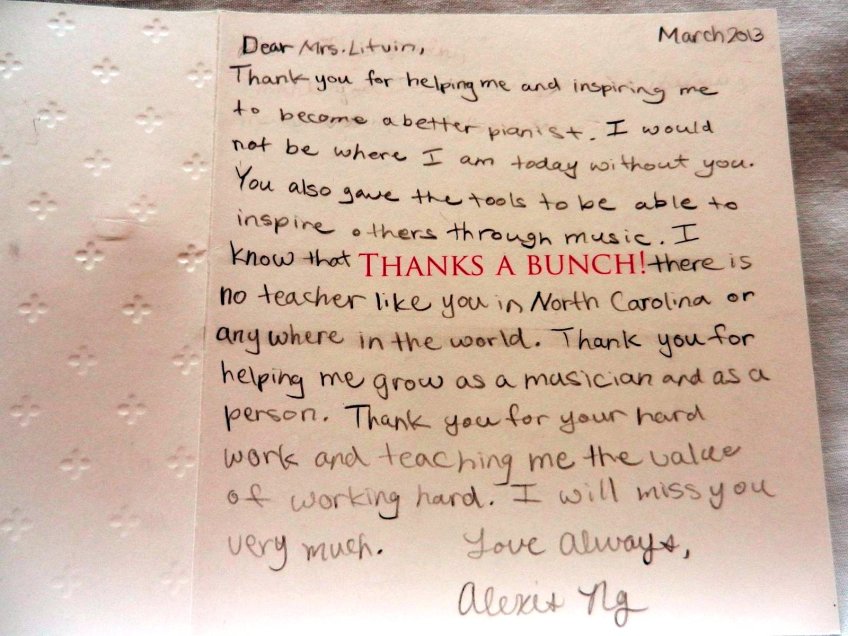 March 2013
Dear Mrs. Litvin,
Thank you for helping me and inspiring me
to become a better pianist. I would
not be where I am today without you.
You also gave the tools to be able to
inspire others through music. I
know that THANKS A BUNCH! there is
no teacher like you in North Carolina or
anywhere in the world. Thank you for
helping me grow as a musician and as a
person. Thank you for your hard
work and teaching me the value
of working hard. I will miss you
very much. Love Always,
Alexis Ng